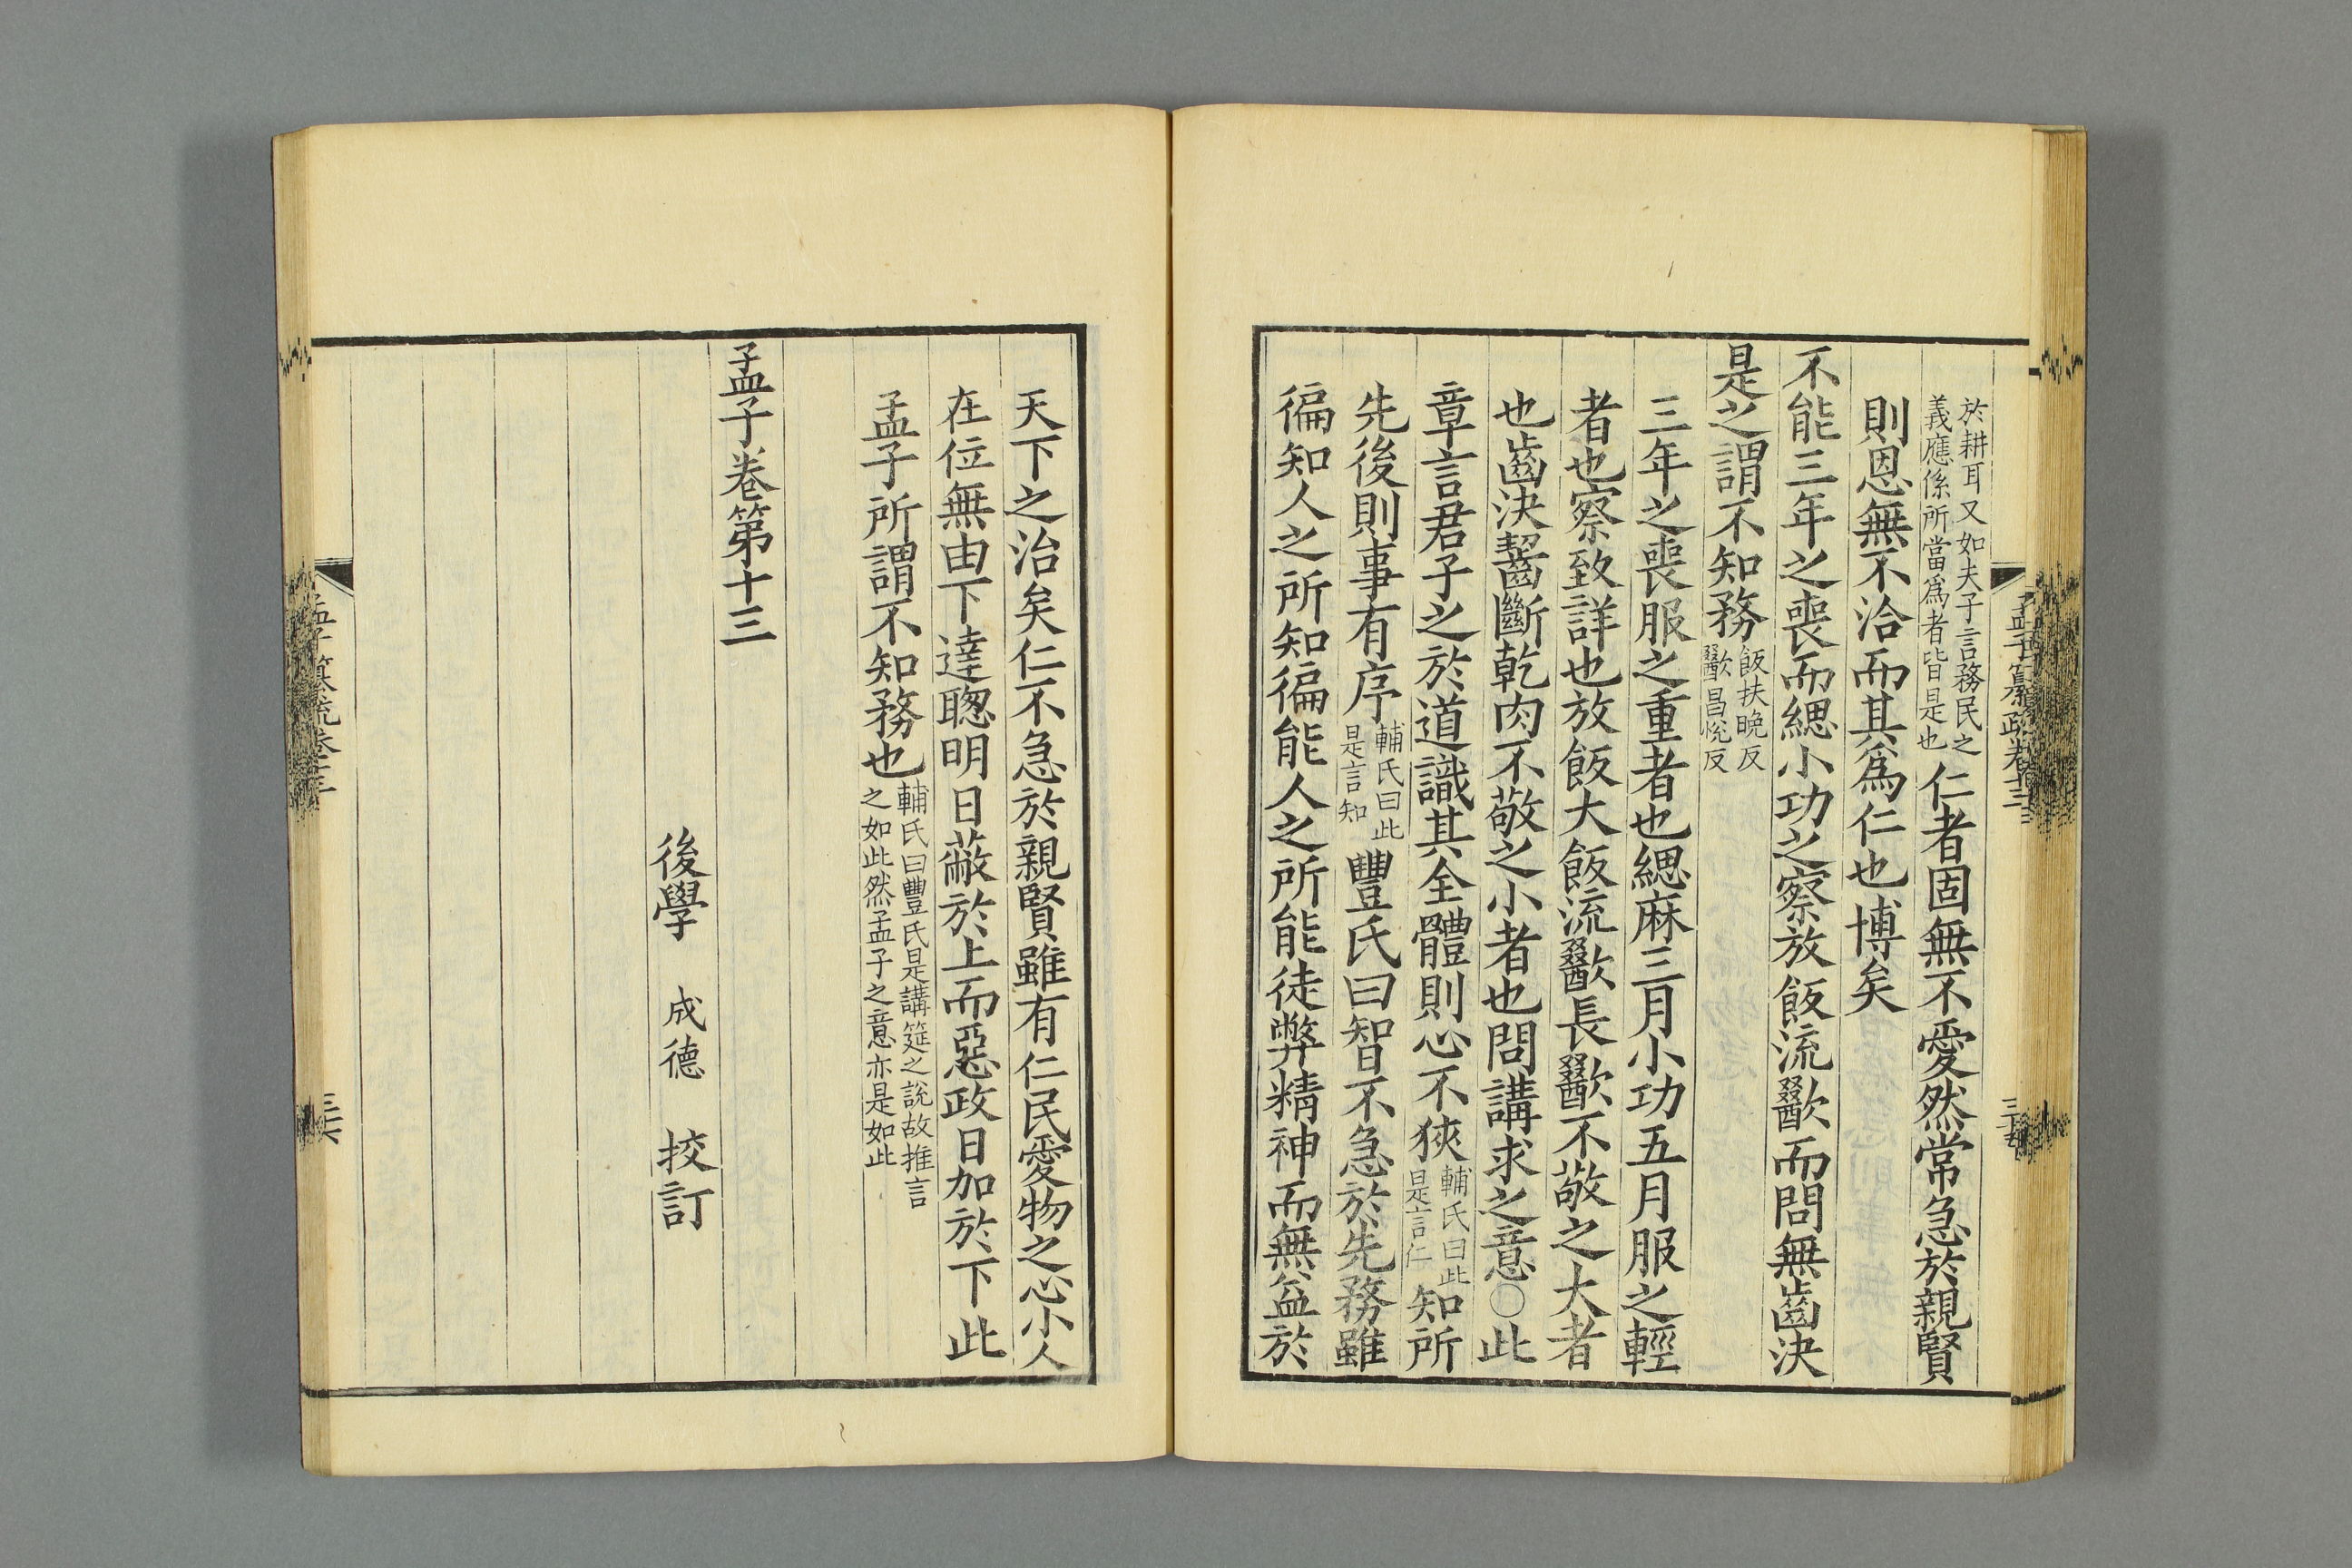 於耕耳又如夫子言務民之
義應係所當爲者皆是也
仁者固無不愛然常急於親賢
則恩無不洽而其爲仁也博矣
不能三年之喪而緦小功之察放飯流歠而問無齒決
是之謂不知務
飯扶晚反
歠昌悅反
三年之喪服之重者也緦麻三月小功五月服之輕
者也察致詳也放飯大飯流歠長歠不敬之大者
也齒決齧斷乾肉不敬之小者也問講求之意〇此
章言君子之於道識其全體則心不狹
輔氏曰此
是言仁
知所
先後則事有序
輔氏曰此
是言知
豐氏曰智不急於先務雖
徧知人之所知徧能人之所能徒弊精神而無益於
天下之治矣仁不急於親賢雖有仁民愛物之心小人
在位無由下達聰明日蔽於上而惡政日加於下此
孟子所謂不知務也
輔氏曰豐氏是講筵之說故推言
之如此然孟子之意亦是如此
孟子卷第十三
後學 成德 挍訂
孟子纂疏卷十三